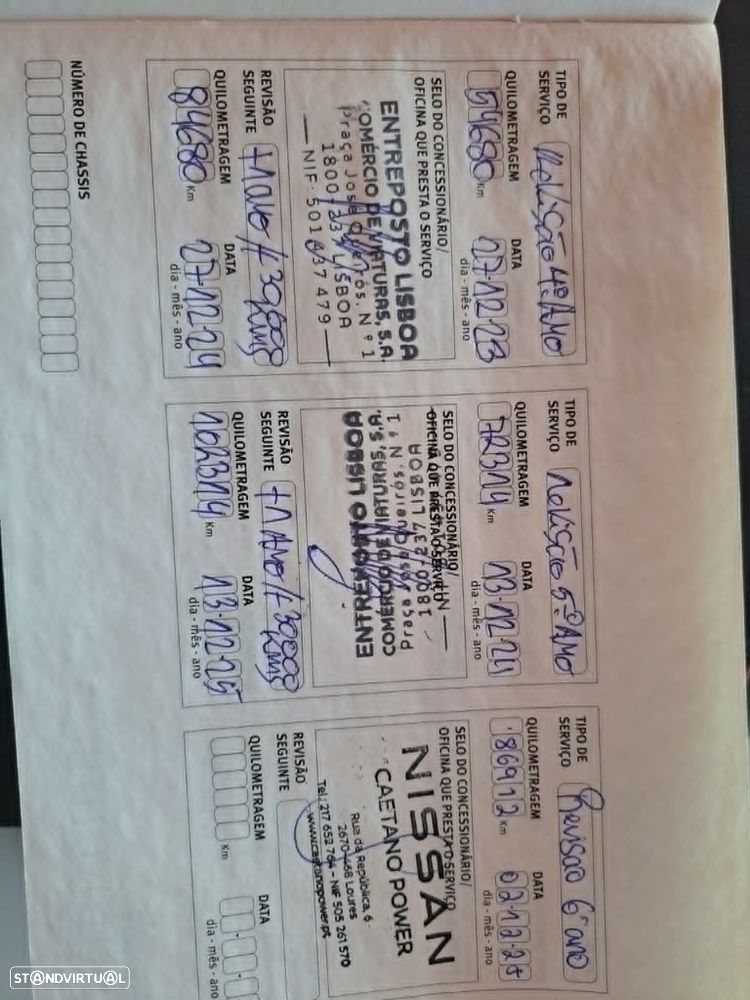 TIPO DE
SERVIÇO Revisão 4º Ano
QUILOMETRAGEM DATA
54680 Km 27-12-23
dia - mês - ano
SELO DO CONCESSIONÁRIO/
OFICINA QUE PRESTA O SERVIÇO
ENTREPOSTO LISBOA
COMÉRCIO DE VIATURAS, S.A.
Praça José Queirós, Nº 1
1800-237 LISBOA
NIF: 501 037 479
REVISÃO
SEGUINTE +1 Ano/+30.000 Kms
QUILOMETRAGEM DATA
84680 Km 27-12-24
dia - mês - ano
TIPO DE
SERVIÇO Revisão 5º Ano
QUILOMETRAGEM DATA
72314 Km 13-12-24
dia - mês - ano
SELO DO CONCESSIONÁRIO/
OFICINA QUE PRESTA O SERVIÇO
ENTREPOSTO LISBOA
COMÉRCIO DE VIATURAS, S.A.
Praça José Queirós, Nº 1
1800-237 LISBOA
REVISÃO
SEGUINTE +1 Ano/+30000 Kms
QUILOMETRAGEM DATA
102314 Km 13-12-25
dia - mês - ano
TIPO DE
SERVIÇO Revisão 6º ano
QUILOMETRAGEM DATA
86912 Km 02-12-25
dia - mês - ano
SELO DO CONCESSIONÁRIO/
OFICINA QUE PRESTA O SERVIÇO
NISSAN
CAETANO POWER
Rua da República, 6
2670-468 Loures
Tel: 217 652 764 - NIF 505 261 570
www.caetanopower.pt
REVISÃO
SEGUINTE
QUILOMETRAGEM DATA
Km
dia - mês - ano
NÚMERO DE CHASSIS
STANDVIRTUAL